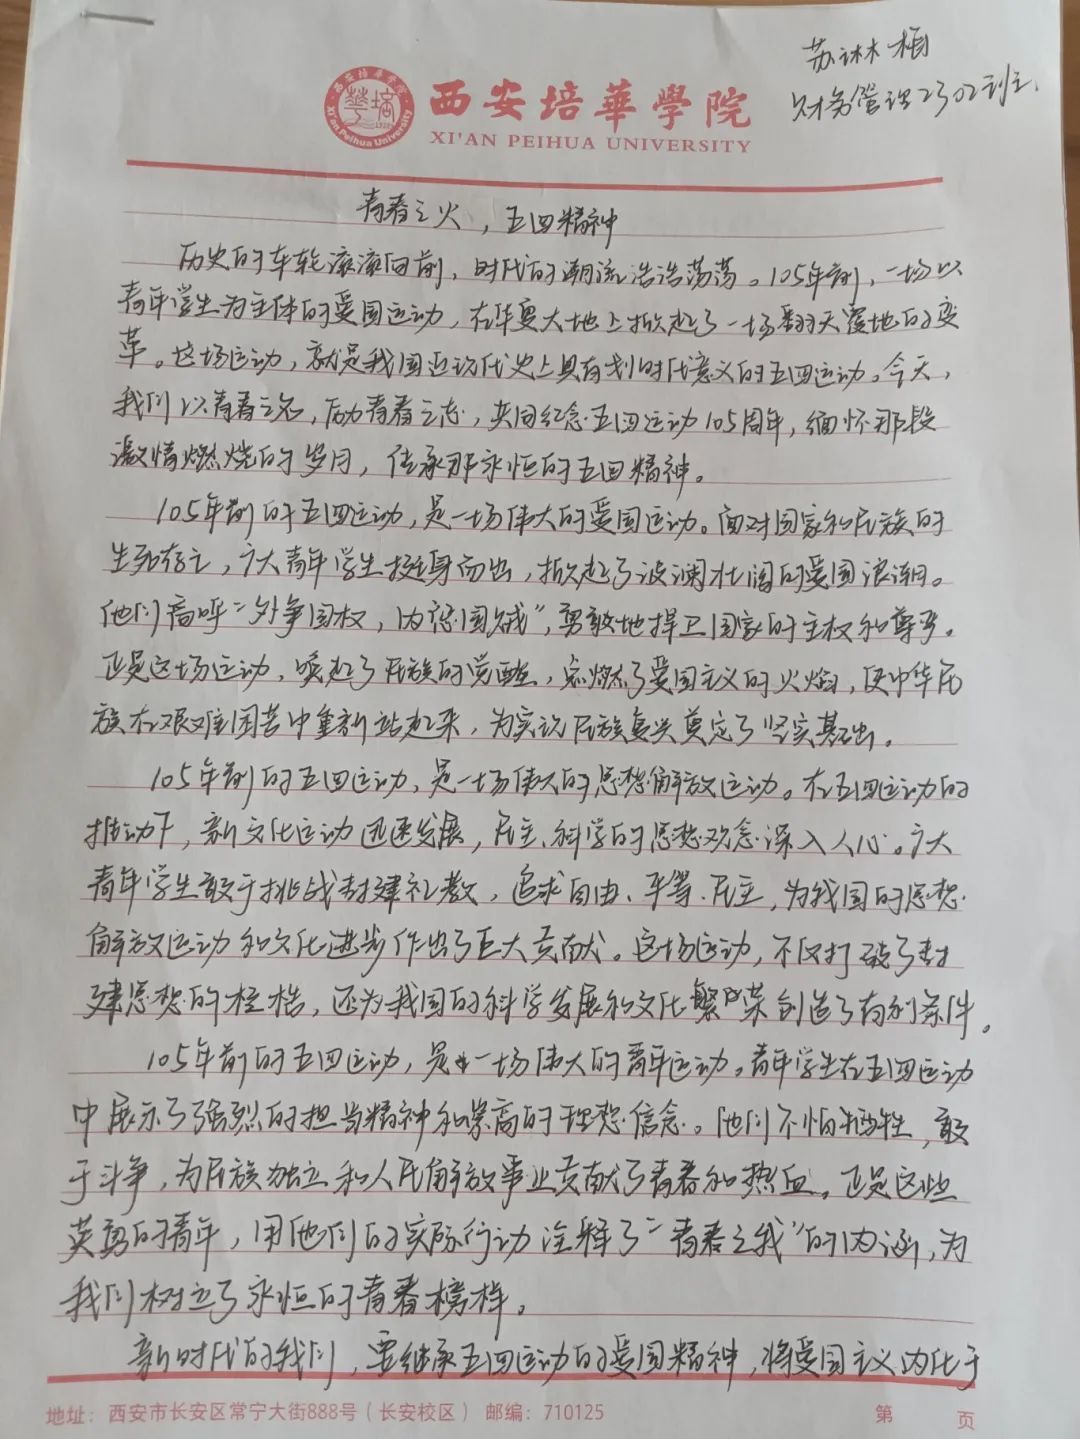 苏琳楠
财务管理2302班
西安培華學院
XI'AN PEIHUA UNIVERSITY
青春之火，五四精神
历史的车轮滚滚向前，时代的潮流浩浩荡荡。105年前，一场以
青年学生为主体的爱国运动，在华夏大地上掀起了一场翻天覆地的变
革。这场运动，就是我国近现代史上具有划时代意义的五四运动。今天，
我们以青春之名，励青春之志，共同纪念五四运动105周年，缅怀那段
激情燃烧的岁月，传承那永恒的五四精神。
105年前的五四运动，是一场伟大的爱国运动。面对国家和民族的
生死存亡，广大青年学生挺身而出，掀起了波澜壮阔的爱国浪潮。
他们高呼“外争国权，内惩国贼”，勇敢地捍卫国家的主权和尊严。
正是这场运动，唤起了民族的觉醒，点燃了爱国主义的火焰，使中华民
族在艰难困苦中重新站起来，为实现民族复兴奠定了坚实基础。
105年前的五四运动，是一场伟大的思想解放运动。在五四运动的
推动下，新文化运动迅速发展，民主、科学的思想观念深入人心。广大
青年学生敢于挑战封建礼教，追求自由、平等、民主，为我国的思想
解放运动和文化进步作出了巨大贡献。这场运动，不仅打破了封
建思想的桎梏，还为我国的科学发展和文化繁荣创造了有利条件。
105年前的五四运动，是一场伟大的青年运动。青年学生在五四运动
中展示了强烈的担当精神和崇高的理想信念。他们不怕牺牲，敢
于斗争，为民族独立和人民解放事业贡献了青春和热血。正是这些
英勇的青年，用他们的实际行动诠释了“青春之我”的内涵，为
我们树立了永恒的青春榜样。
新时代的我们，要继承五四运动的爱国精神，将爱国主义内化于
地址：西安市长安区常宁大街888号（长安校区） 邮编：710125 第 页